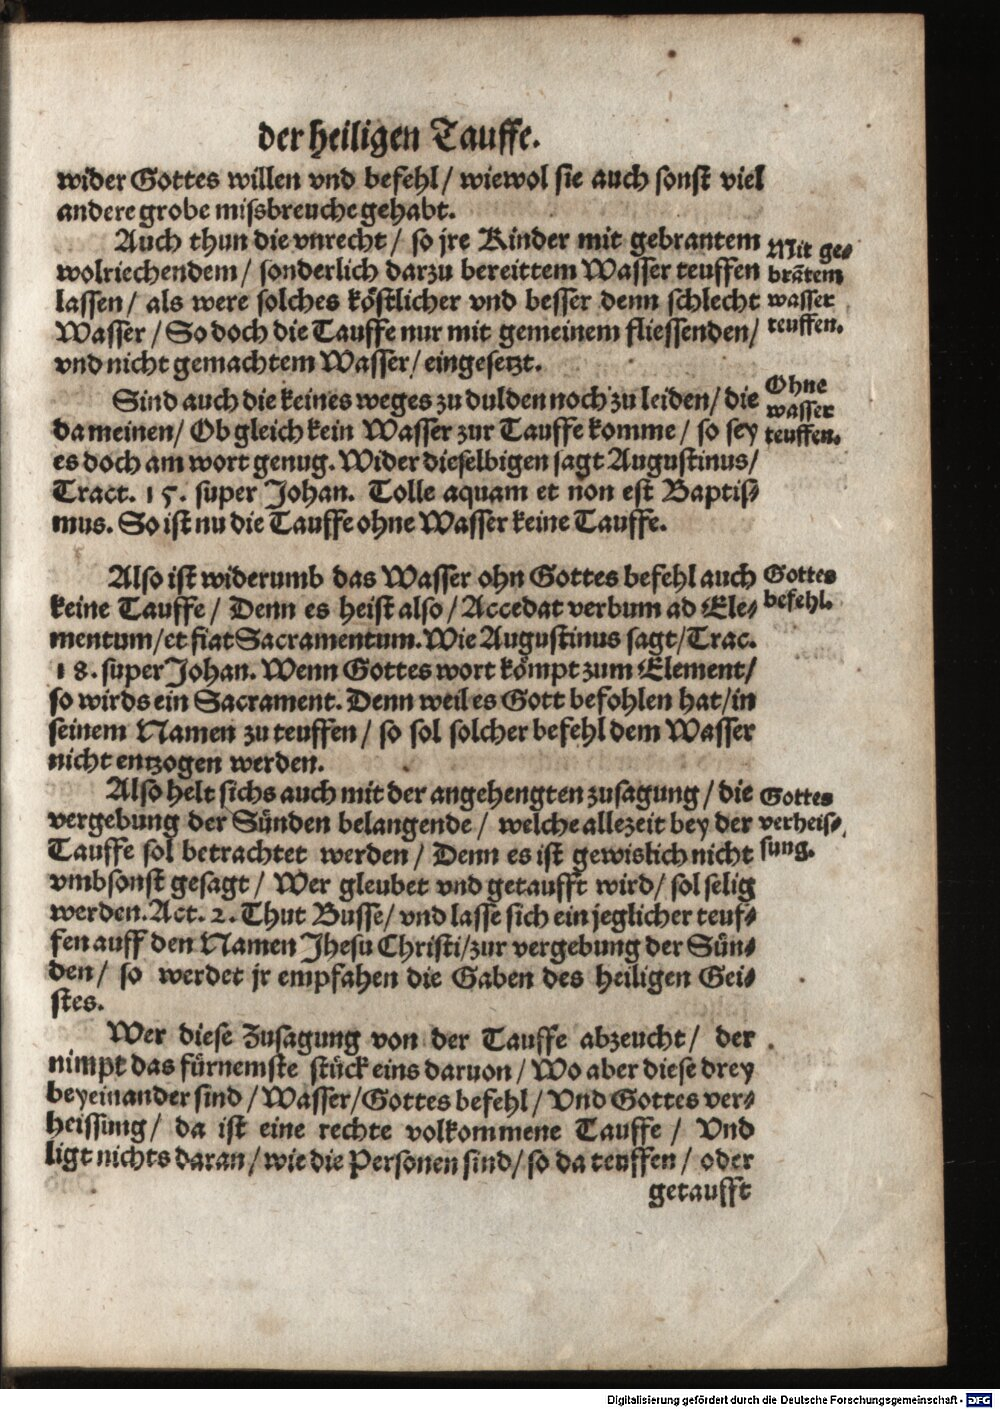 der heiligen Tauffe.
wider Gottes willen vnd befehl / wiewol sie auch sonst viel
andere grobe missbreuche gehabt.
Auch thun die vnrecht / so jre Kinder mit gebrantem
wolriechendem / sonderlich darzu bereittem Wasser teuffen
lassen / als were solches köstlicher vnd besser denn schlecht
Wasser / So doch die Tauffe nur mit gemeinem fliessenden /
vnd nicht gemachtem Wasser / eingesetzt.
Mit ge-
brātem
wasser
teuffen.
Sind auch die keines weges zu dulden noch zu leiden / die
da meinen / Ob gleich kein Wasser zur Tauffe komme / so sey
es doch am wort genug. Wider dieselbigen sagt Augustinus /
Tract. 15. super Johan. Tolle aquam et non est Baptis-
mus. So ist nu die Tauffe ohne Wasser keine Tauffe.
Ohne
wasser
teuffen.
Also ist widerumb das Wasser ohn Gottes befehl auch
keine Tauffe / Denn es heist also / Accedat verbum ad Ele-
mentum / et fiat Sacramentum. Wie Augustinus sagt / Trac.
18. super Johan. Wenn Gottes wort kömpt zum Element /
so wirds ein Sacrament. Denn weil es Gott befohlen hat / in
seinem Namen zu teuffen / so sol solcher befehl dem Wasser
nicht entzogen werden.
Gottes
befehl.
Also helt sichs auch mit der angehengten zusagung / die
vergebung der Sünden belangende / welche allezeit bey der
Tauffe sol betrachtet werden / Denn es ist gewislich nicht
vmbsonst gesagt / Wer gleubet vnd getaufft wird / sol selig
werden. Act. 2. Thut Busse / vnd lasse sich ein jeglicher teuf-
fen auff den Namen Jhesu Christi / zur vergebung der Sün-
den / so werdet jr empfahen die Gaben des heiligen Gei-
stes.
Gottes
verheis-
sung.
Wer diese Zusagung von der Tauffe abzeucht / der
nimpt das fürnemste stück eins daruon / Wo aber diese drey
beyeinander sind / Wasser / Gottes befehl / Vnd Gottes ver-
heissung / da ist eine rechte volkommene Tauffe / Vnd
ligt nichts daran / wie die Personen sind / so da teuffen / oder
getaufft
Digitalisierung gefördert durch die Deutsche Forschungsgemeinschaft - DFG